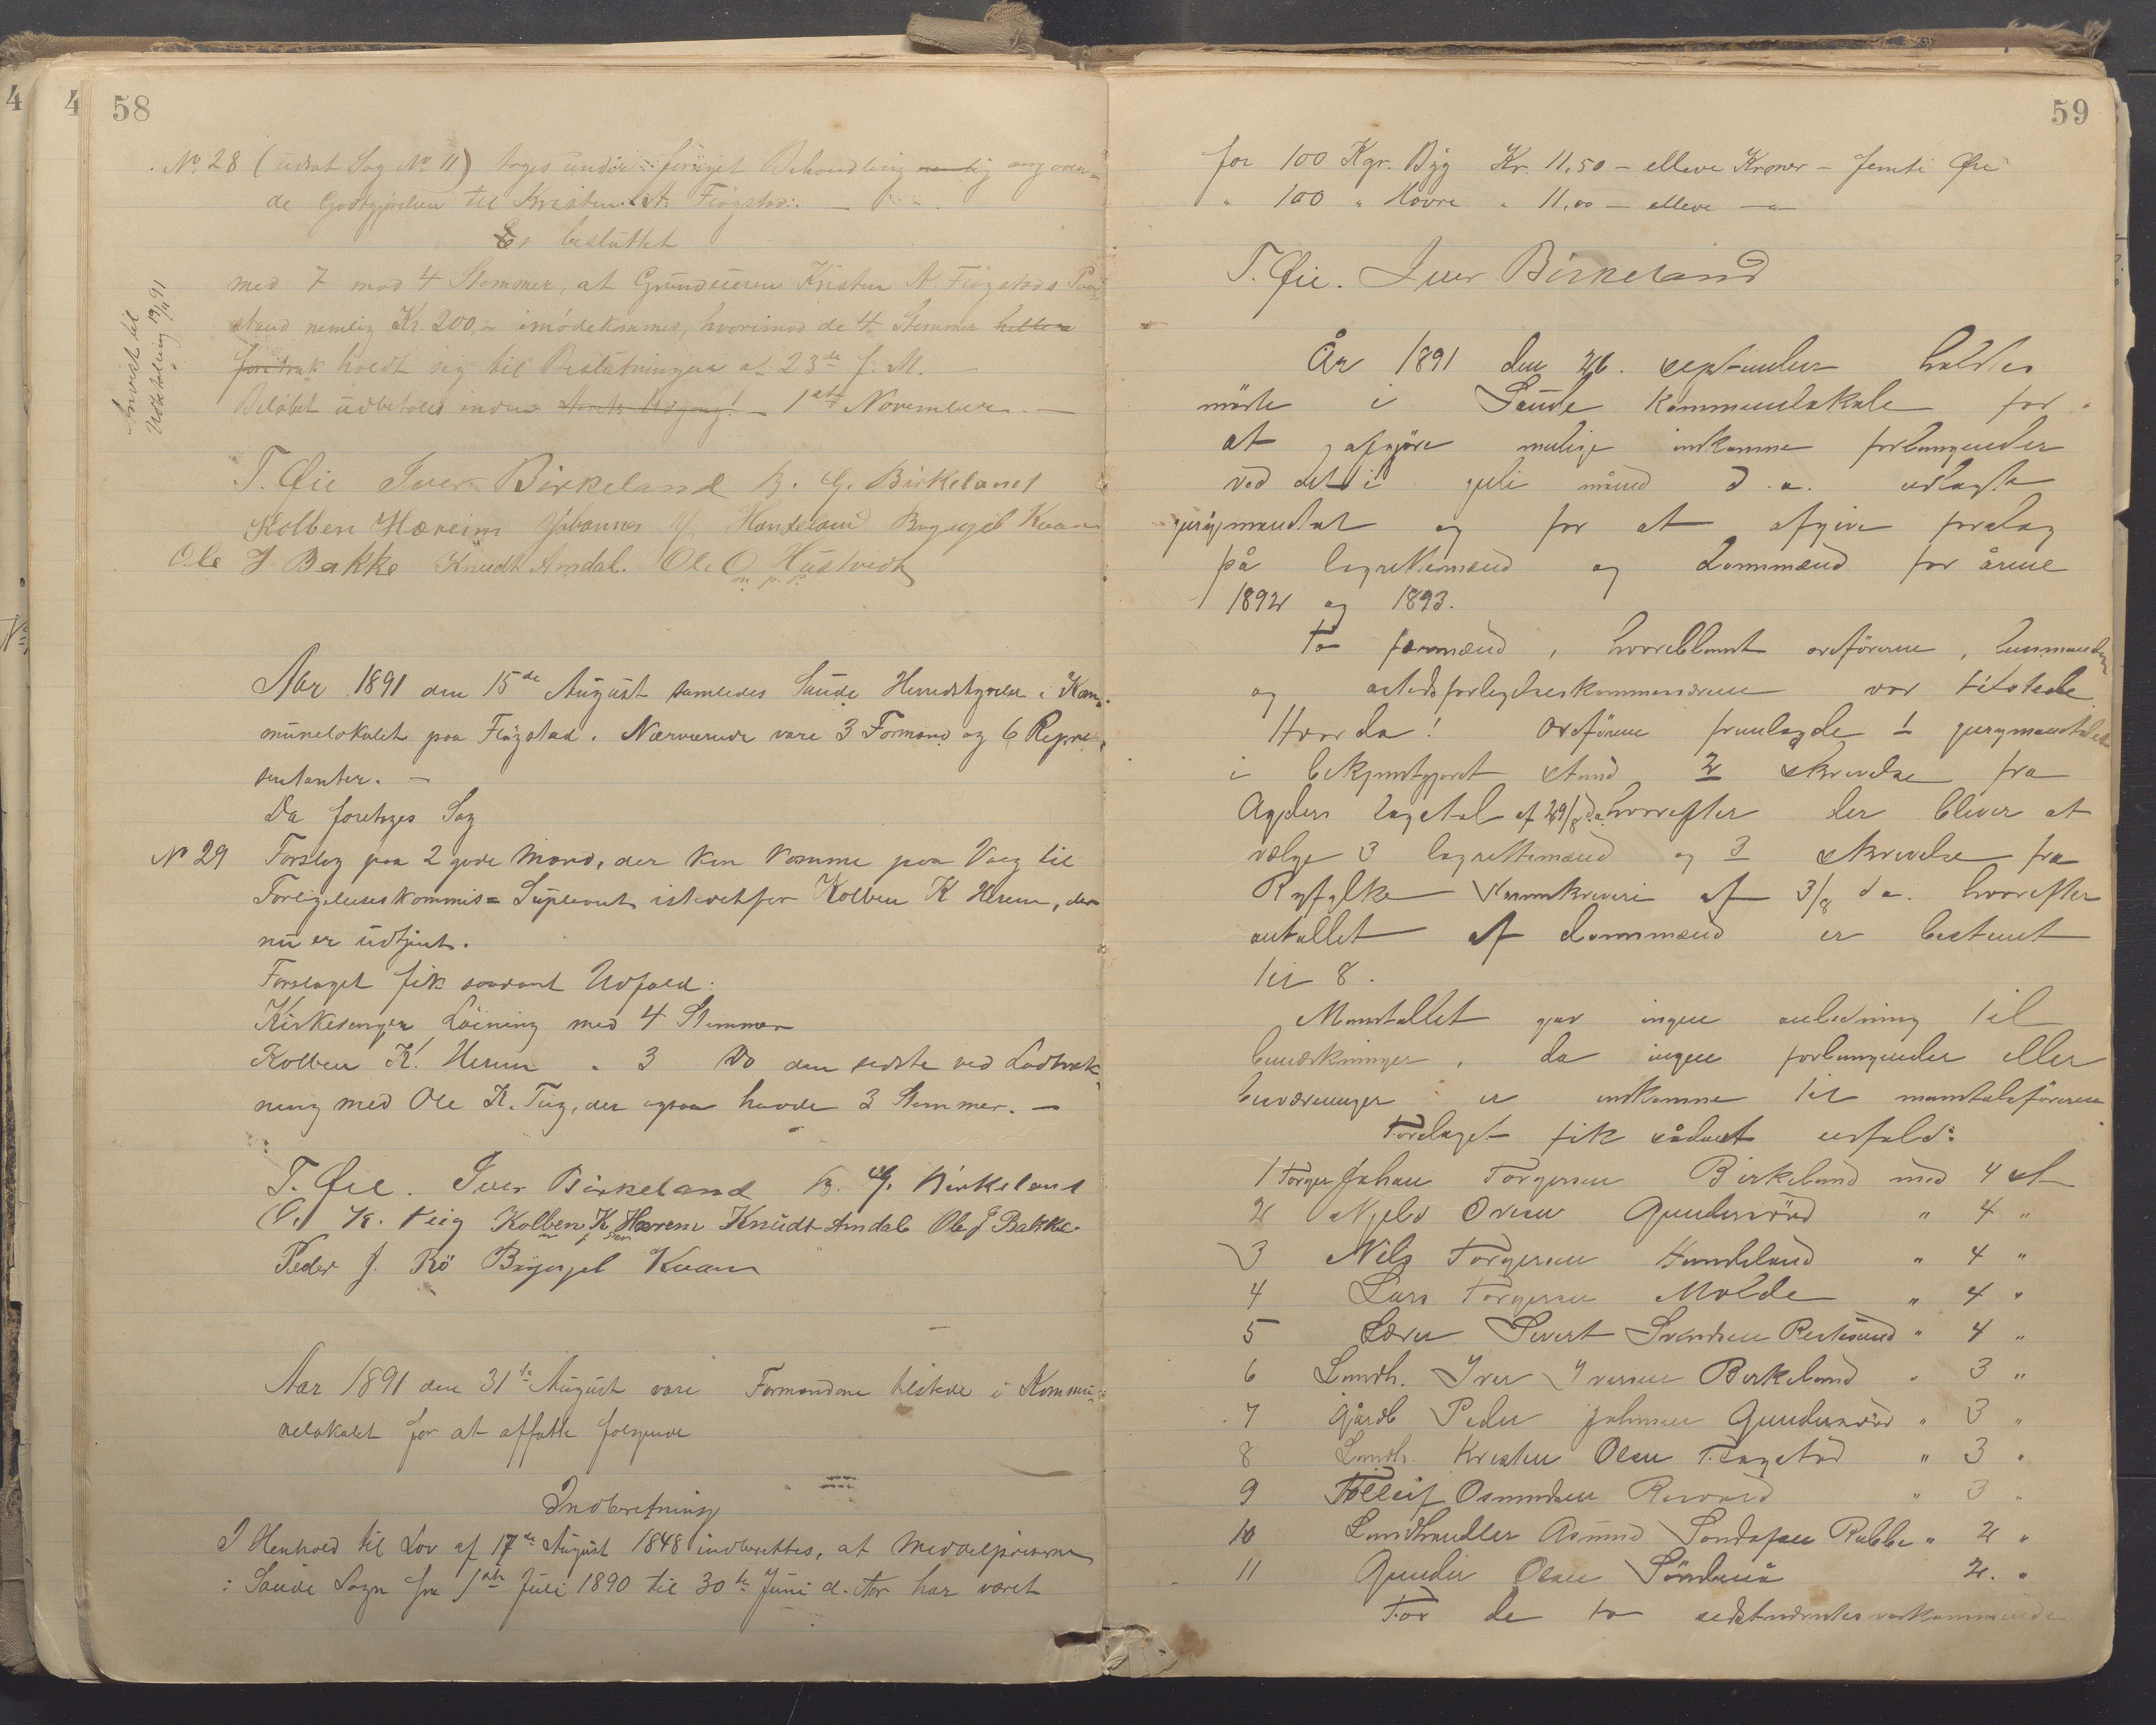 58
No 28 (udsat Sag No 11) toges under fornyet Behandling nemlig angaaen=
de Godtgjørelsen til Kristen A. Fløgstad. —
Er besluttet
med 7 mod 4 Stemmer, at Grundeieren Kristen A. Fløgstads Paa=
stand nemlig Kr. 200,- imødekommes, hvorimod de 4 Stemmer hellere
foretrak holdt sig til Beslutningen af 23de f. M. —
Beløbet udbetales inden Aarets Udgang. — 1ste November. —
Anvist til
Udbetaling 19/11 91
T. Øie Iver Birkeland B. G. Birkeland
Kolben Hæreim Johannes J. Handeland Børgejel Kvam
Ole J Bakke Knudt Amdal. Ole O Hustvedt
m. p. P.
Aar 1891 den 15de August samledes Saude Herredstyrelse i Kom=
munelokalet paa Fløgstad. Nærværende vare 3 Formænd og 6 Repræ=
sentanter. —
Da foretoges Sag
No 29 Forslag paa 2 gode Mænd, der kan komme paa Valg til
Forligelseskommis= Supleant istedetfor Kolben K Herem, der
nu er udtjent.
Forslaget fik saadant Udfald:
Kirkesanger Løining med 4 Stemmer
Kolben K. Herem " 3 Do den sidste ved Lodtræk=
ning med Ole K. Teig, der ogsaa havde 3 Stemmer. —
T. Øie. Iver Birkeland B. G. Birkeland
O. K. Teig Kolben K Hærem Knudt Amdal Ole J Bakke.
Peder J. Rö Børgejel Kvam
Aar 1891 den 31te August vare Formændene tilstede i Kommu=
nelokalet for at affatte følgende
Indberetning
I Henhold til Lov af 17de August 1848 indberettes, at Middelpriserne
i Saude Sogn fra 1ste Juli 1890 til 30te Juni d. Aar har været
59
for 100 Kgr. Byg Kr. 11,50 — elleve Kroner — femti Øre
" 100 " Havre " 11,00 — elleve —"—
T. Øie. Iver Birkeland
År 1891 den 26. september holdtes
møde i Saude kommunelokale for
at afgjøre mulige indkomne forlangender
ved det i juli måned d. a. udlagte
jurymandtal og for at afgive forslag
på lagrettemænd og domsmænd for årene
1892 og 1893.
To formænd, hvoriblandt ordføreren, lensmanden
og forligelseskommissæren var tilstede.
Hvorda! Ordføreren fremlagde 1 jurymandtallet
i bekjentgjoret stand 2 skrivelse fra
Agders lagstol af 29/8 d. a. hvorefter der bliver at
vælge 3 lagrettemænd og 3 skrivelse fra
Ryfylke sorenskriveri af 3/8 d. a. hvorefter
antallet af domsmænd er bestemt
til 8.
Mandtallet gav ingen anledning til
bemærkninger, da ingen forlangender eller
besværinger er indkomne til mandtalsføreren
Forslaget fik sådant udfald:
1 Torger Johan Torgersen Birkeland med 4 st
2 Njeld Orsen Gundersrød " 4 "
3 Nils Torgersen Handeland " 4 "
4 Lars Torgersen Molde " 4 "
5 Lærer Sivert Svendsen " 4 "
6 Landh. Iver Iversen Birkeland " 3 "
7 Gårdb Peder Johnsen Gundersrød " 3 "
8 Landh. Kristen Olsen Fløgstad " 3 "
9 Tolleif Osmundsen " 3 "
10 Landhandler Asmund Rabbe " 2 "
11 Gunder Olsen Söndenå 2. "
For de to sidstnævntes vedkommende